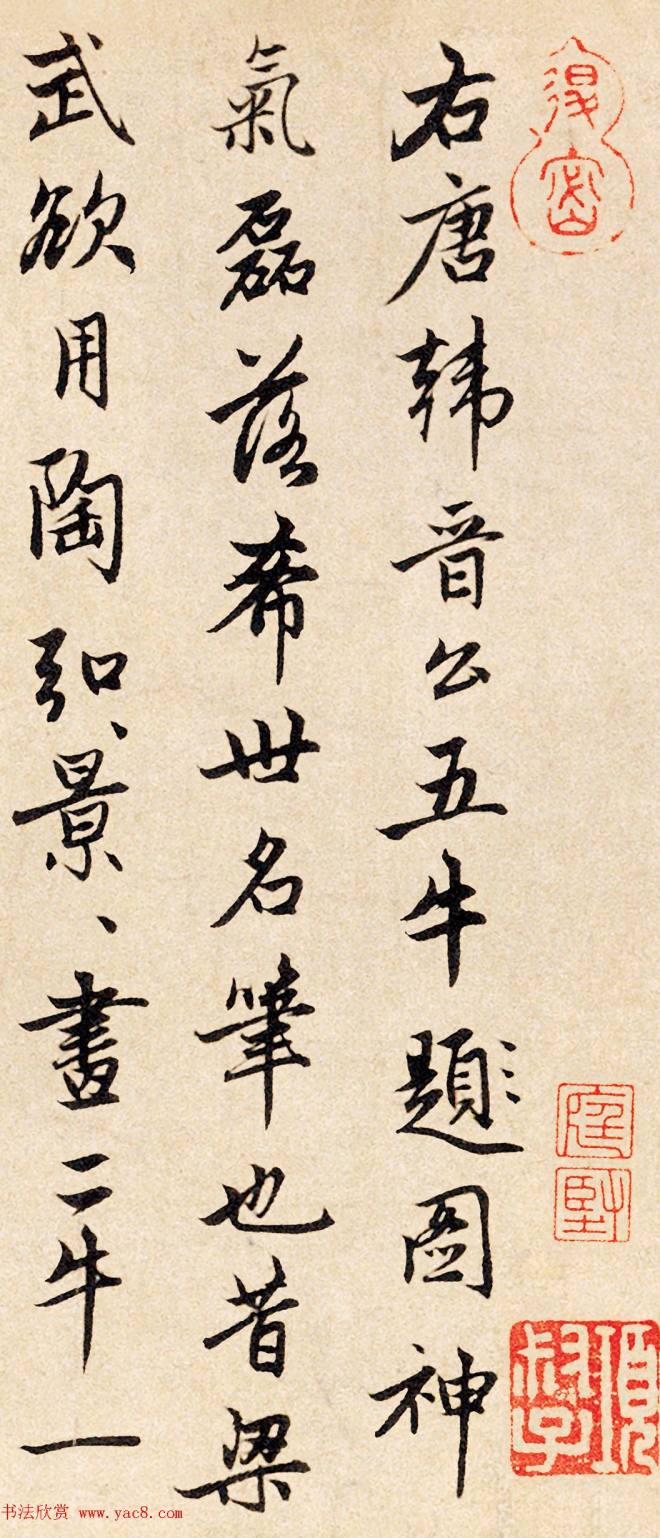 得密
項叔子
右唐韓晉公五牛題圖神
氣磊落希世名筆也昔梁
武欲用陶弘景、畫二牛一
书法欣赏 www.yac8.com